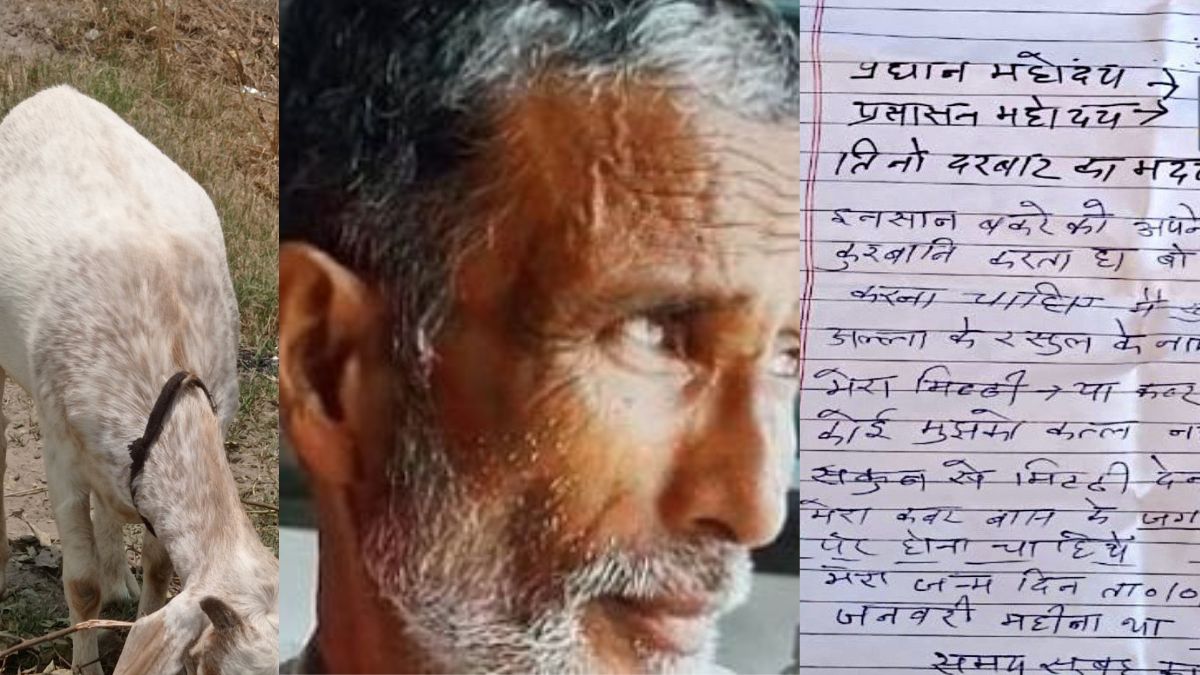 प्रधान महोदय →
प्रसासन महोदय →
तिनो दरबार का मदद
इनसान बकरे को अपने
कुरबानि करता है। वो
करना चाहिए मैं
अल्ला के रसुल के ना
मेरा मिटटी → या कबर
कोई मुझको कत्ल न
सकुन से मिटटी देन
मेरा कबर बास के जग
पर होना चाहिये
मेरा जन्म दिन ता० 10
जनवरी महीना था
समय सुबह